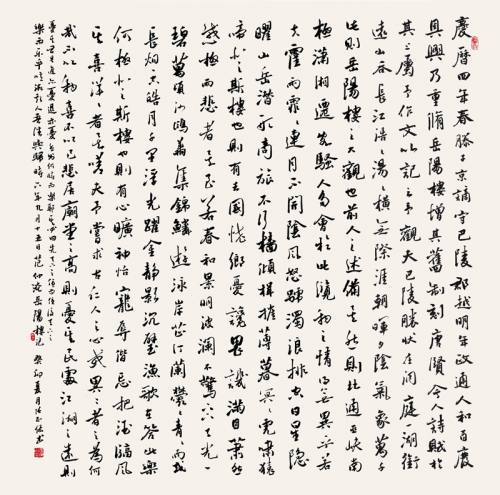 慶曆四年春滕子京謫守巴陵郡越明年政通人和百廢
具興乃重脩岳陽樓增其舊制刻唐賢今人詩賦於
其上屬予作文以記之予觀夫巴陵勝狀在洞庭一湖銜
遠山吞長江浩浩湯湯橫無際涯朝暉夕陰氣象萬千
此則岳陽樓之大觀也前人之述備矣然則北通巫峽南
極瀟湘遷客騷人多會於此覽物之情得無異乎若
夫霪雨霏霏連月不開陰風怒號濁浪排空日星隱
曜山岳潛形商旅不行檣傾楫摧薄暮冥冥虎嘯猿
啼登斯樓也則有去國懷鄉憂讒畏譏滿目蕭然
感極而悲者矣至若春和景明波瀾不驚上下天光一
碧萬頃沙鷗翔集錦鱗游泳岸芷汀蘭鬱鬱青青而或
長烟一空皓月千里浮光躍金靜影沉璧漁歌互答此樂
何極登斯樓也則有心曠神怡寵辱偕忘把酒臨風
其喜洋洋者矣嗟夫予嘗求古仁人之心或異二者之為何
哉不以物喜不以己悲居廟堂之高則憂其民處江湖之遠則
憂其君是進亦憂退亦憂然則何時而樂耶其必曰先天下之憂而憂後天下之
樂而樂乎噫微斯人吾誰與歸時六年九月十五日范仲淹岳陽樓記癸卯夏月